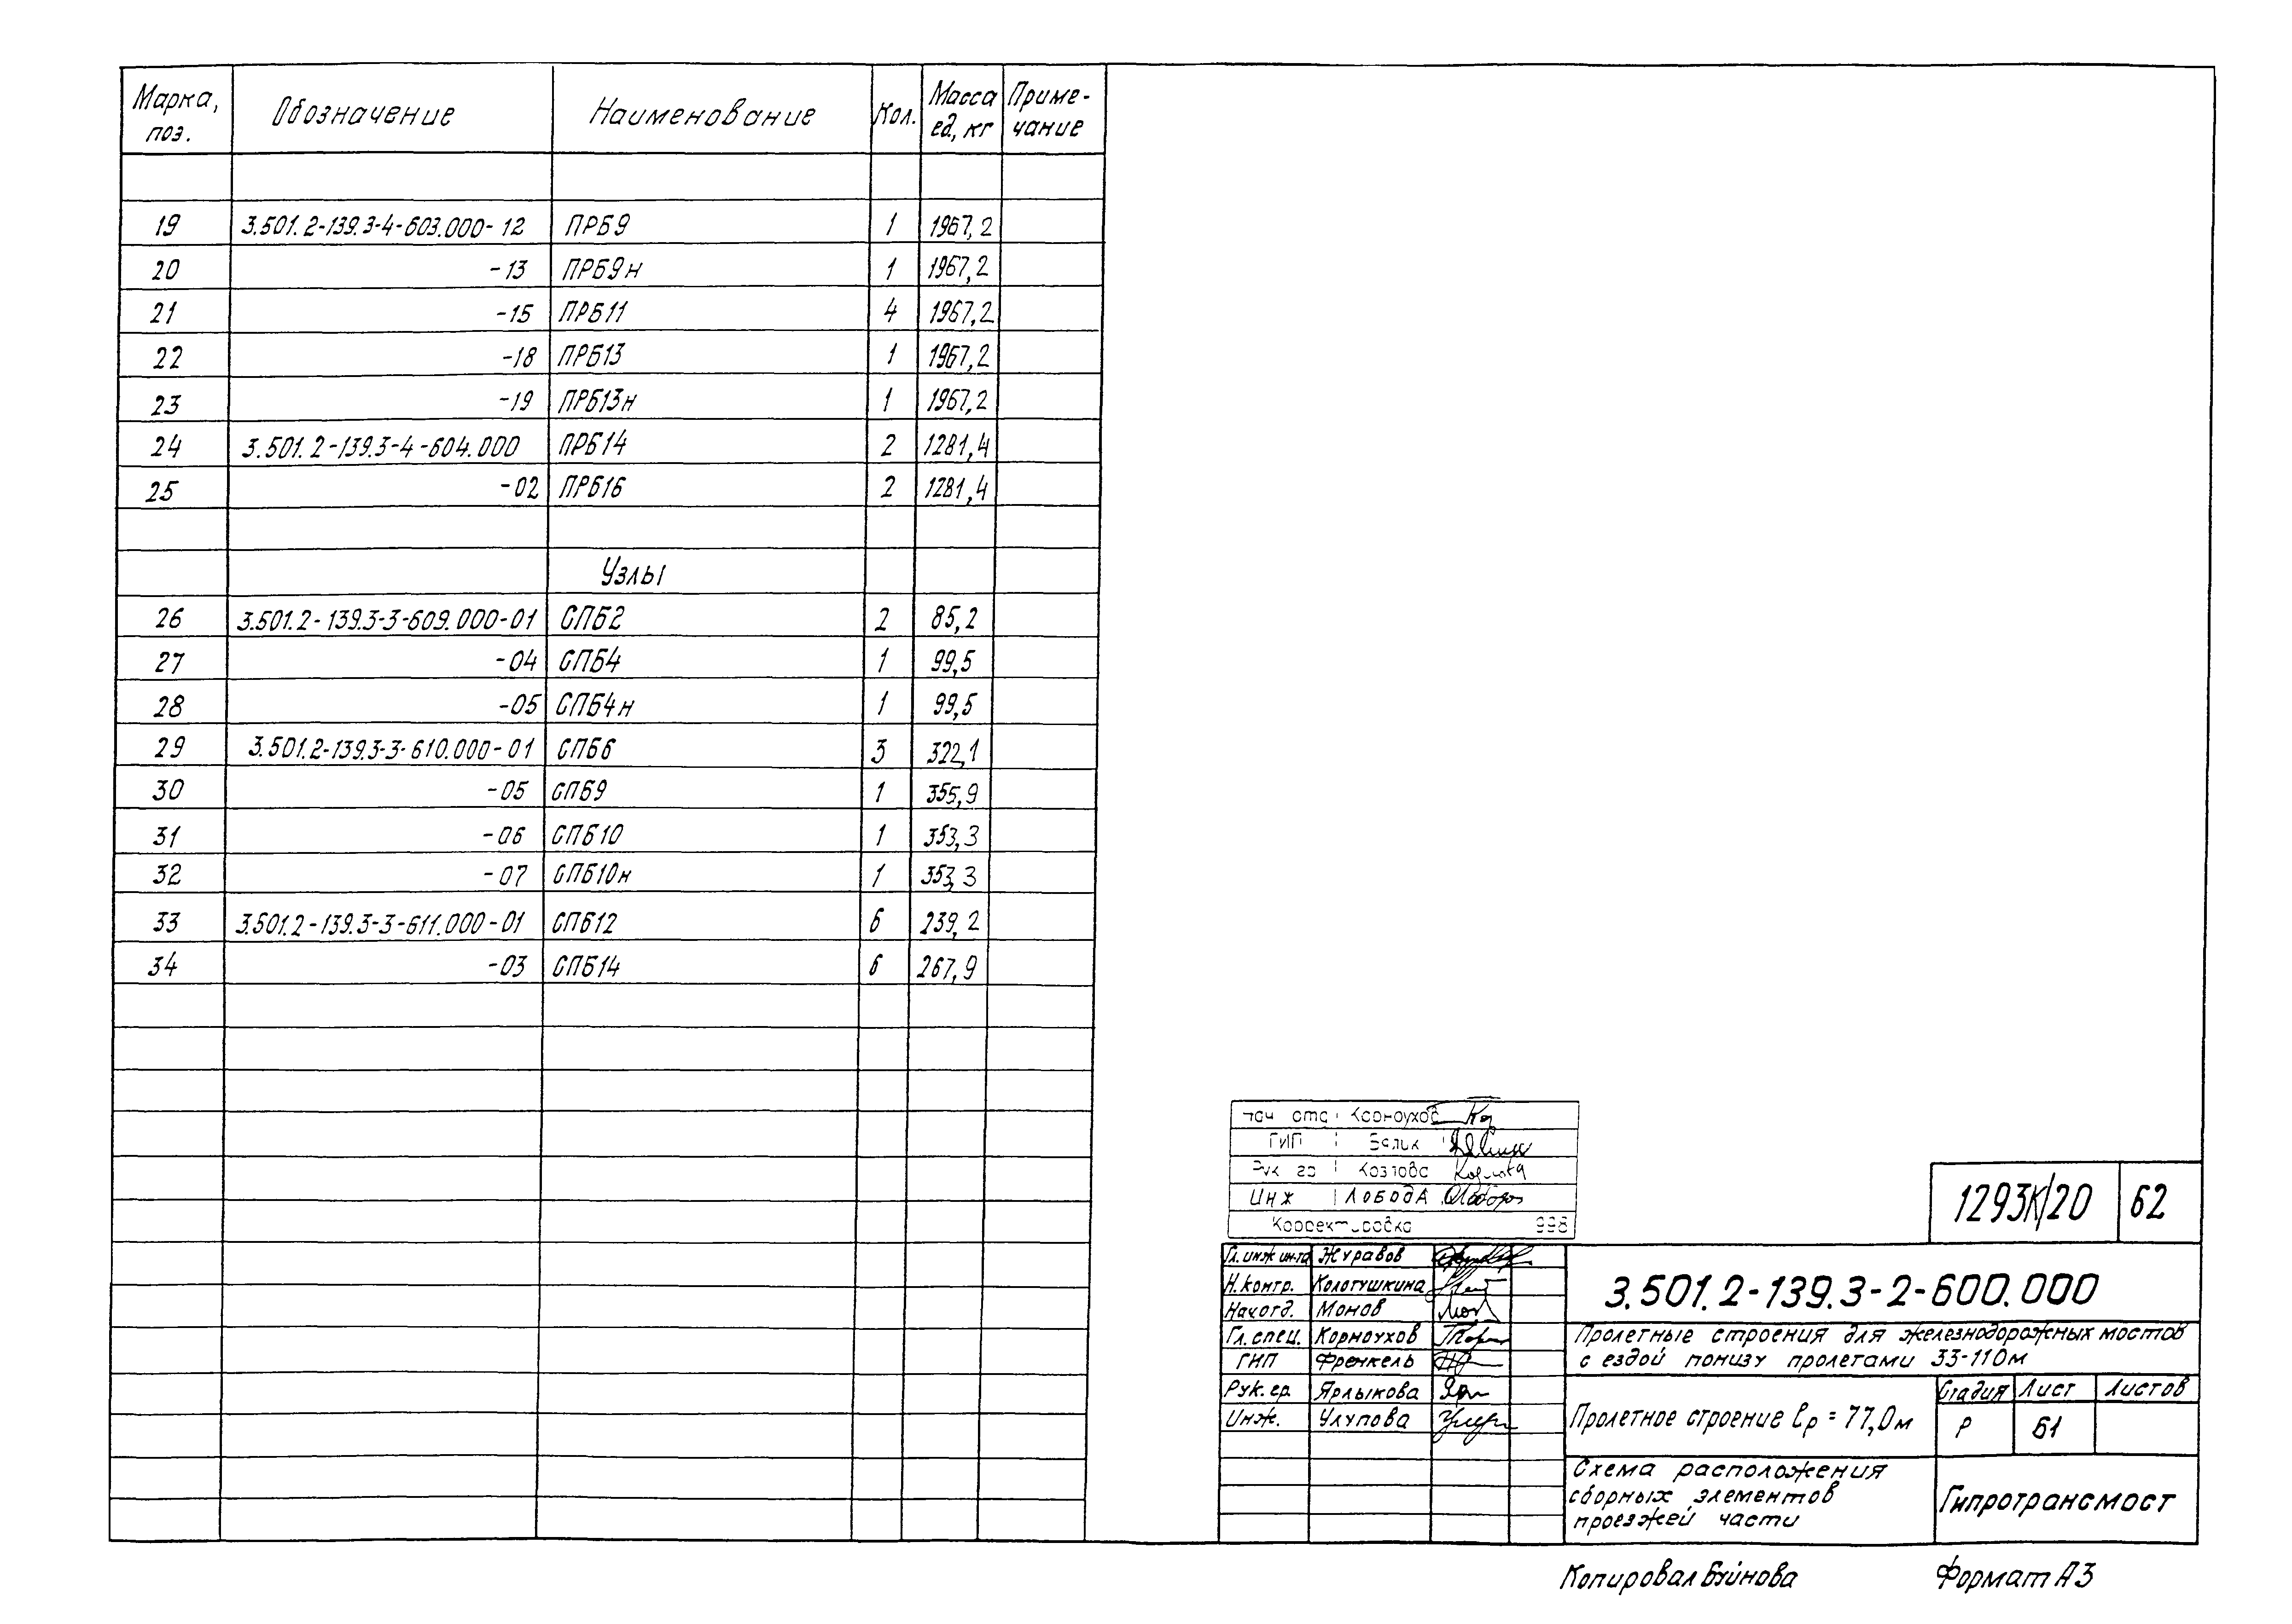 Марка, поз. Обозначение Наименование Кол. Масса ед, кг Приме- чание
19 3.501.2-139.3-4-603.000-12 ПРБ9 1 1967,2
20 -13 ПРБ9н 1 1967,2
21 -15 ПРБ11 4 1967,2
22 -18 ПРБ13 1 1967,2
23 -19 ПРБ13н 1 1967,2
24 3.501.2-139.3-4-604.000 ПРБ14 2 1281,4
25 -02 ПРБ16 2 1281,4
Узлы
26 3.501.2-139.3-3-609.000-01 СПБ2 2 85,2
27 -04 СПБ4 1 99,5
28 -05 СПБ4н 1 99,5
29 3.501.2-139.3-3-610.000-01 СПБ6 3 322,1
30 -05 СПБ9 1 355,9
31 -06 СПБ10 1 353,3
32 -07 СПБ10н 1 353,3
33 3.501.2-139.3-3-611.000-01 СПБ12 6 239,2
34 -03 СПБ14 6 267,9
Корноухов
ГИП Белик
Козлова
Инж ЛОБОДА
Корректировка
1293К/20 62
Гл. инж ин-та Журавов
Н. контр. Кологушкина
Нач отд. Монов
Гл. спец. Корноухов
ГИП Френкель
Рук. гр. Ярлыкова
Инж. Улупова
3.501.2-139.3-2-600.000
Пролетные строения для железнодорожных мостов
с ездой понизу пролетами 33-110м
Пролетное строение lр = 77,0м
Стадия Лист Листов
Р 61
Схема расположения
сборных элементов
проезжей части
Гипротрансмост
Копировал Буйнова Формат А3